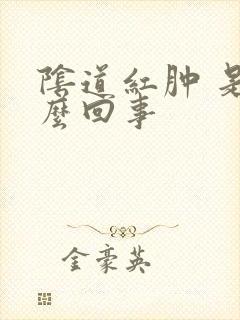 陰道紅肿 是
麼回事
金豪英